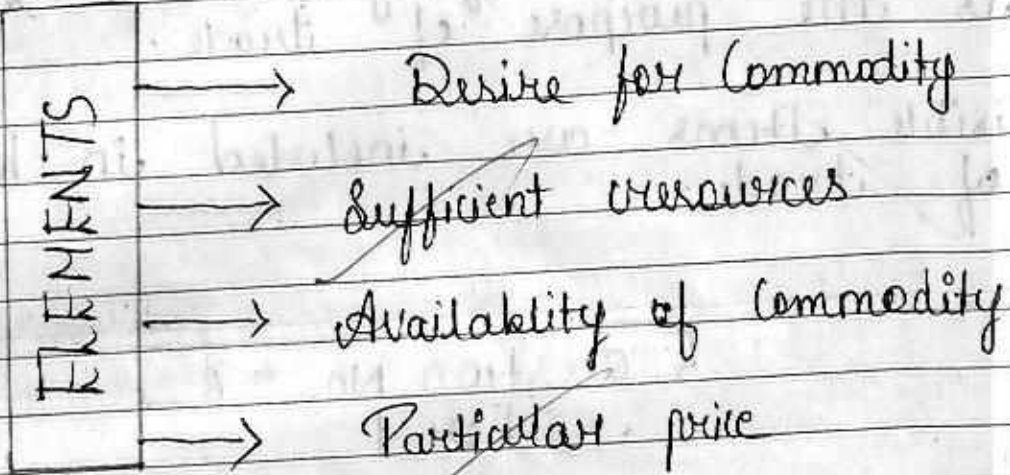 ELEMENTS
Desire for Commodity
Sufficient resources
Availablity of Commodity
Particular price